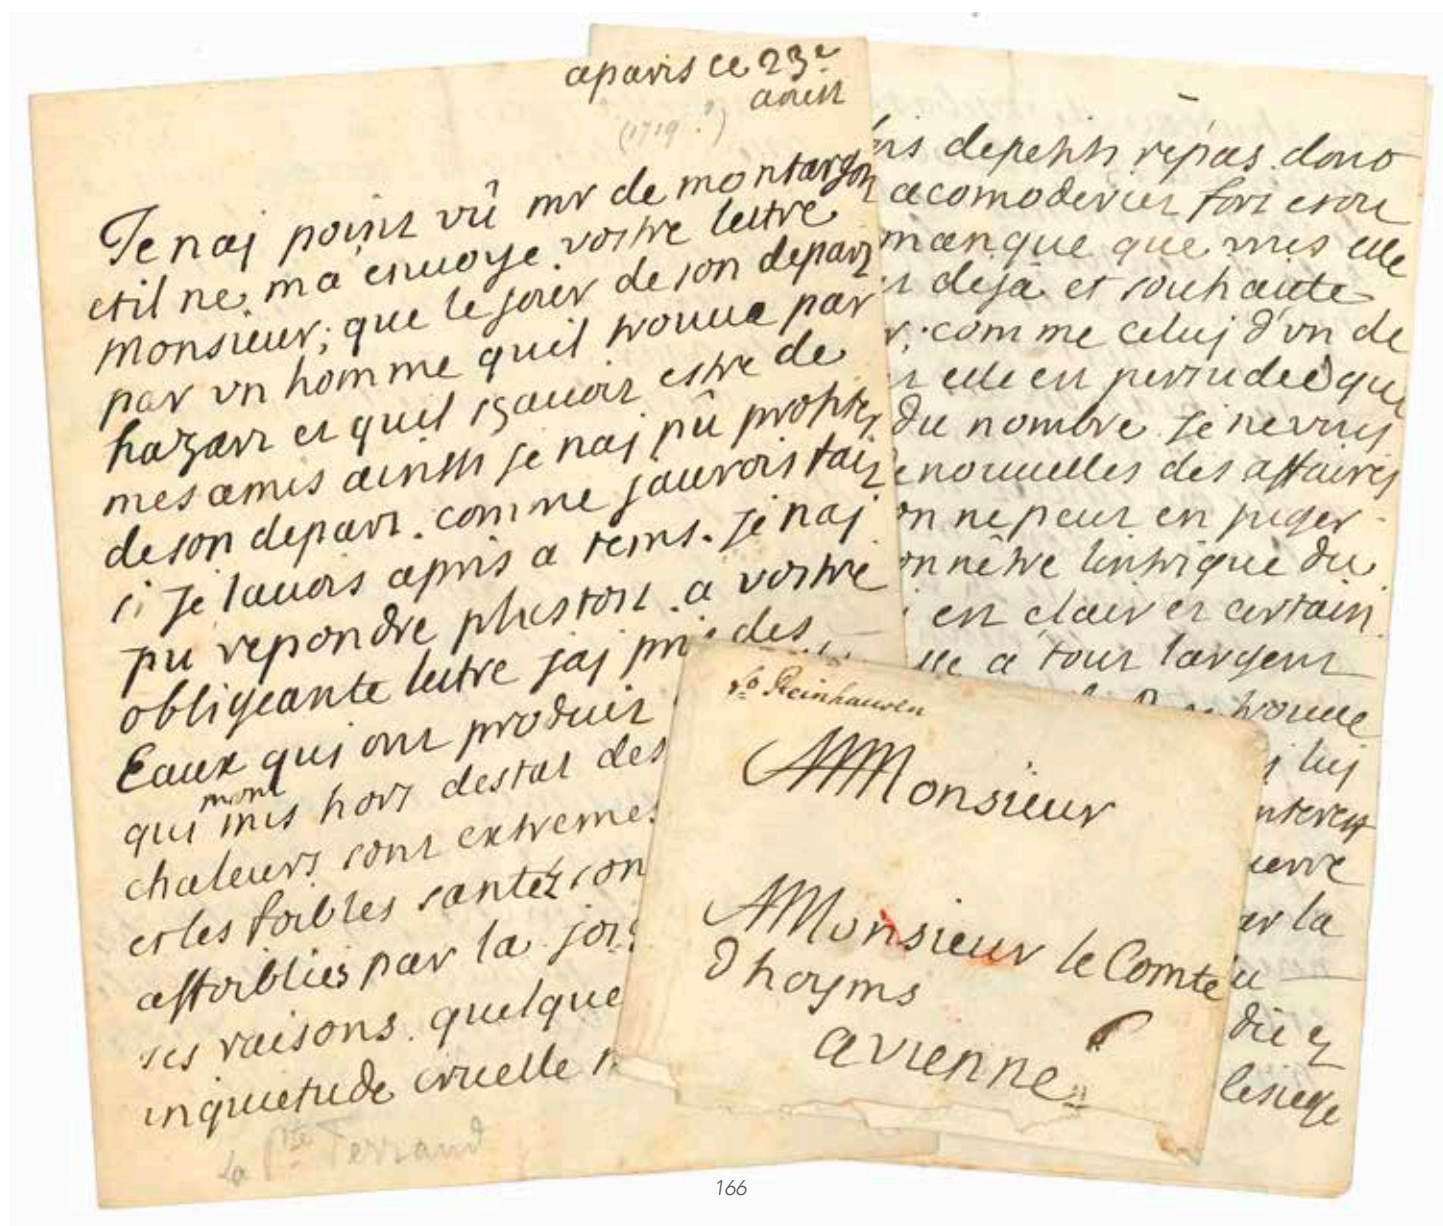 aparis ce 23e
aoust
(1719 ?)
Je naj point vû mr de montargon
etil ne ma envoye vostre lettre
Monsieur; que le jour de son depart
par vn homme quil trouua par
hazart et quil sçauoit estre de
mes amis ainssi je naj pû profiter
deson depart. comme jaurois fait
si je lauois apris a tems. je naj
pu repondre plustost a vostre
obligeante lettre jaj pris des
Eaux quj ont produit
mont
qui mis hors destat des
chaleurs sont extremes
et les foibles santéz son
affoiblies par la joi
ses raisons quelque
inquietude cruelle
La Pte Ferrand
ois depetits répas dont
acomoderiez fort etou
manque que mis elle
deja et souhaite
comme celuj d'vn de
elle est persudée que
du nombre je ne vois
nouuelles des affaires
on ne peut en juger
onnêtre lintrigue du
est clair et certain
a tout largent
trouue
luj
interest
uerre
ar la
u
die z
lesiege
v6 Reinhausen
Monsieur
Monsieur le Comte
dhoyms
avienne
166